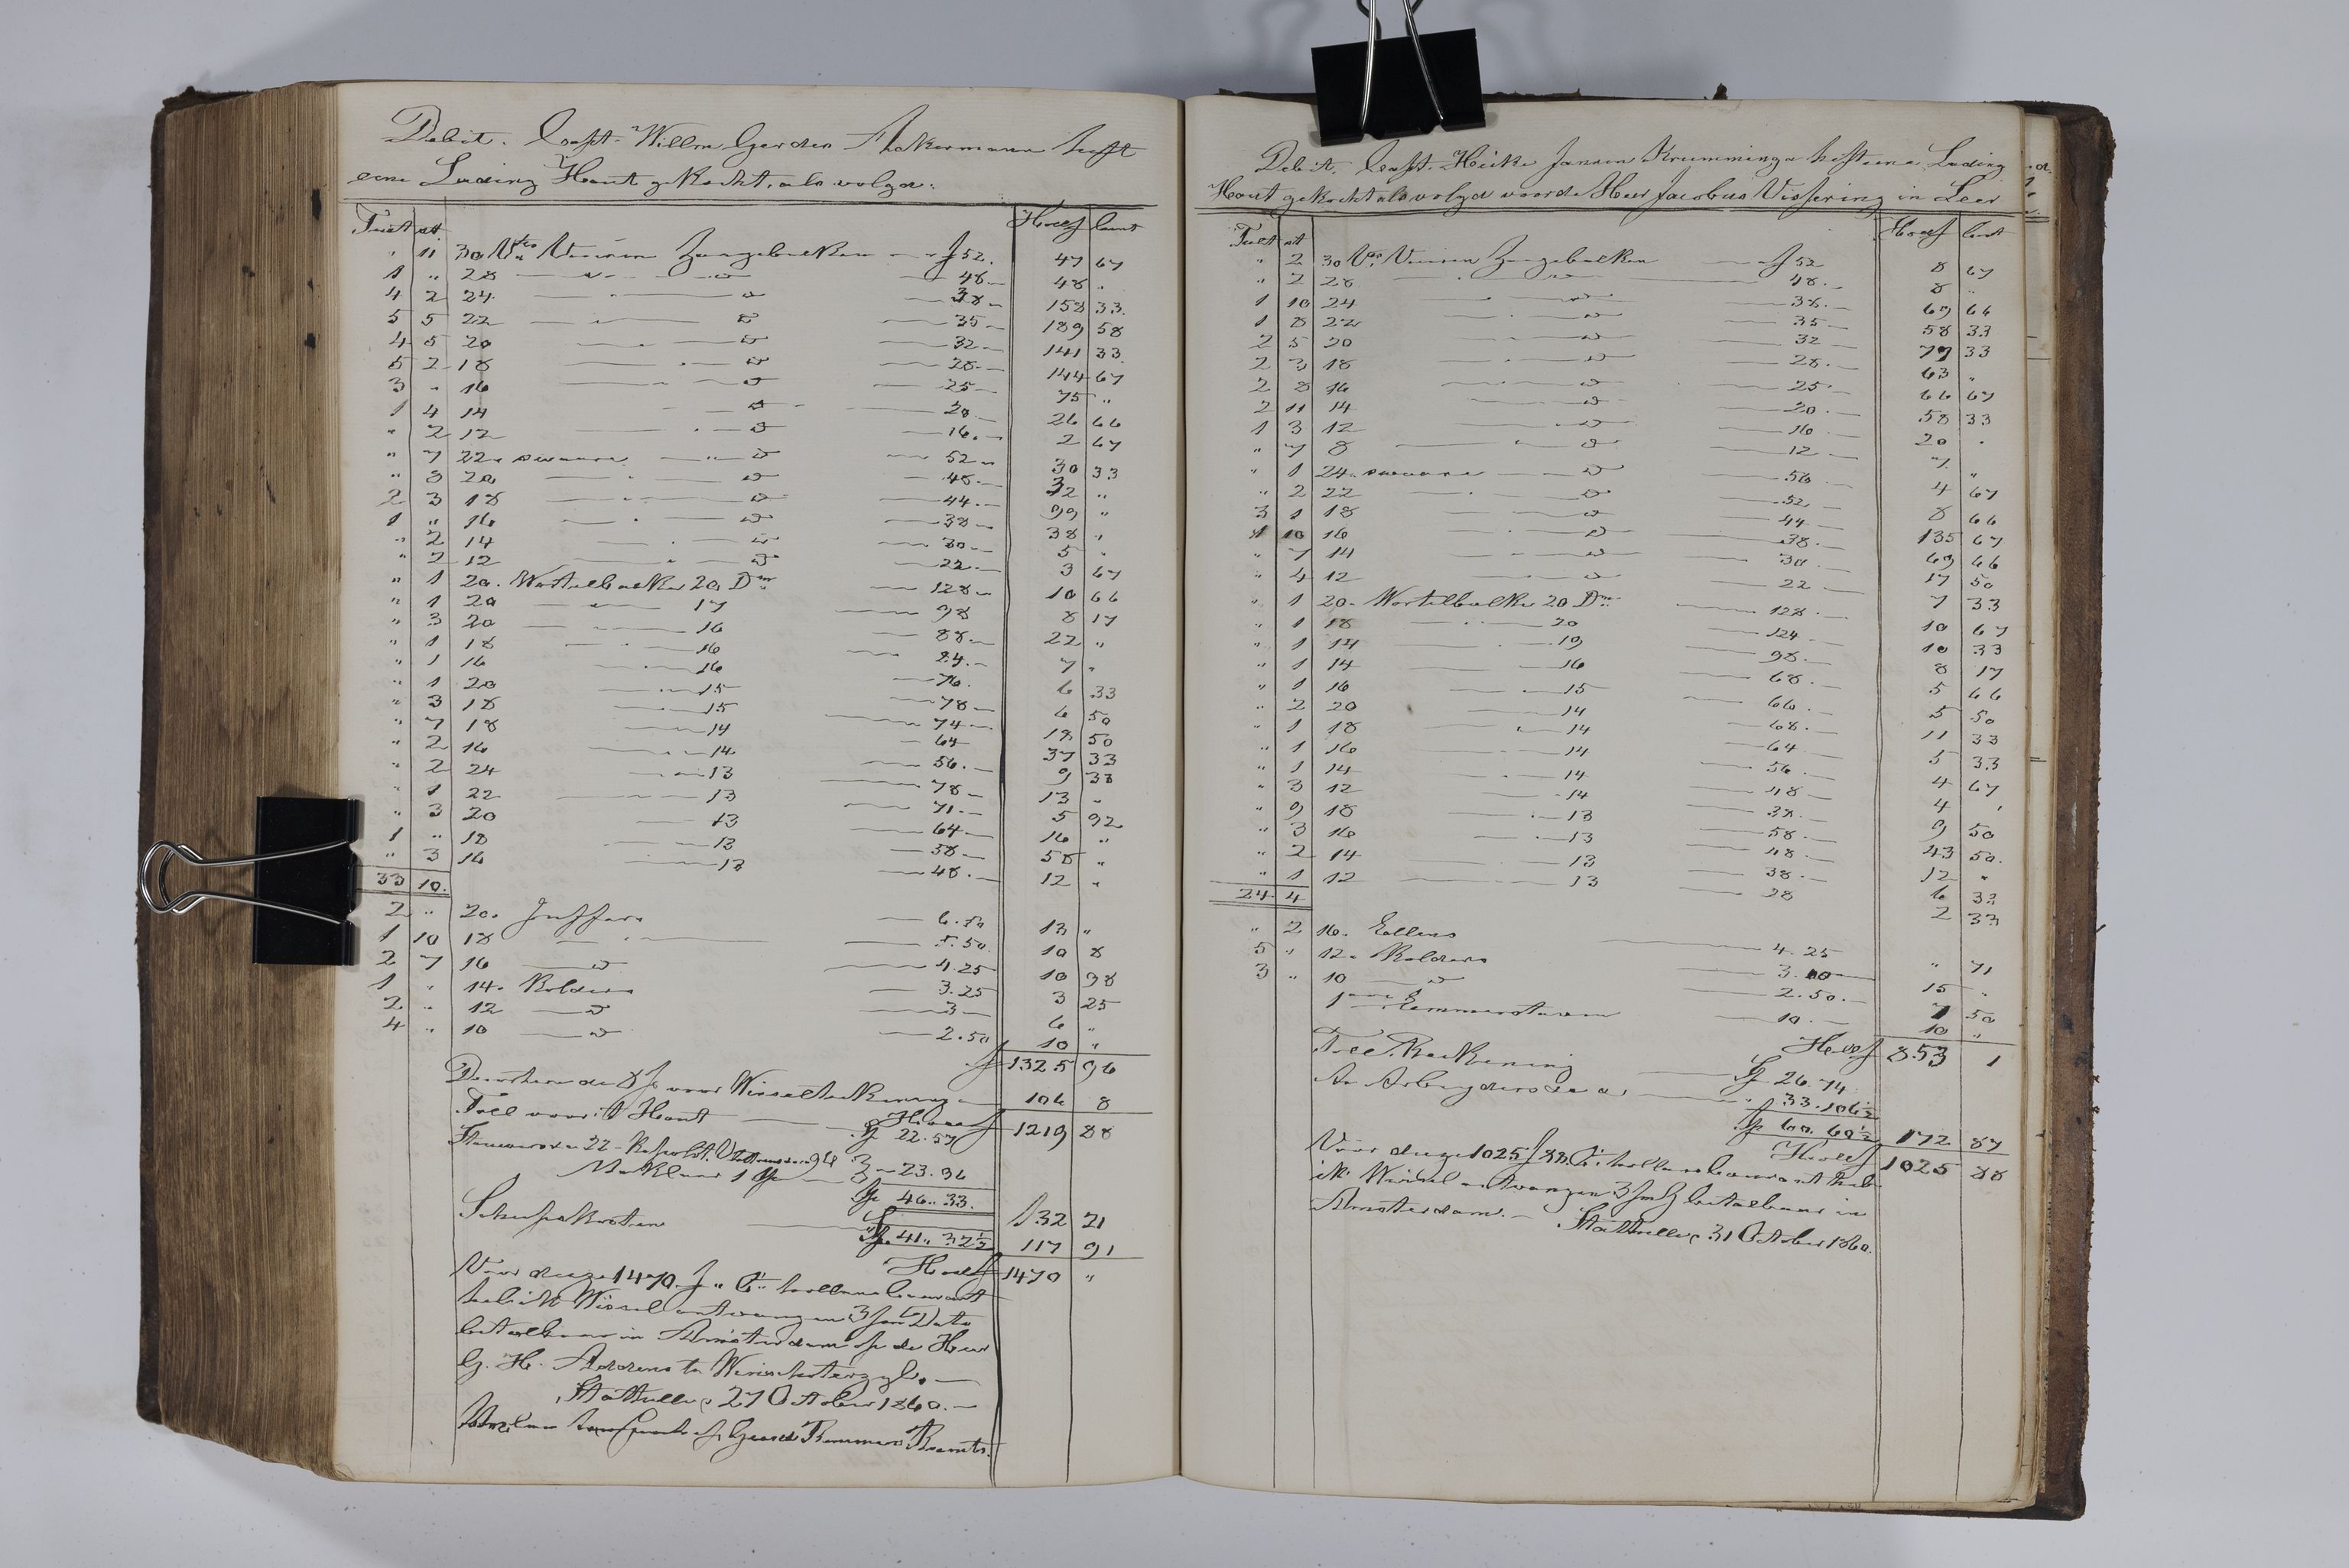 Debit. Capt. Willm Gerdes Ackermann heeft
eene Lading Hout gekocht, als volgt:
Tult st Hollf Cent
" 11 30 Vts Vieren Zaagebalken f 52. 47 67
1 " 28 " d 48 48 "
4 2 24 " d 38 158 33
5 5 22 " d 35 189 58
4 5 20 " d 32 141 33
5 2 18 " d 28 144 67
3 " 16 " d 25 75 "
1 4 14 " d 20 26 66
" 2 12 " d 16 2 67
" 7 22 " swaare " d 52 30 33
" 8 20 " d 48 32 "
2 3 18 " d 44 99 "
1 " 16 " d 38 38 "
" 2 14 " d 30 5 "
" 2 12 " d 22 3 67
" 1 20. Wortelbalke 20 Dm 128 10 66
" 1 20 " 17 98 8 17
" 3 20 " 16 88 22 "
" 1 18 " 16 84 7 "
" 1 16 " 16 76 6 33
" 1 20 " 15 78 6 50
" 3 18 " 15 74 18 50
" 7 18 " 14 64 37 33
" 2 16 " 14 56 9 33
" 2 24 " 13 78 13 "
" 1 22 " 13 71 5 92
" 3 20 " 13 64 16 "
1 " 18 " 13 58 58 "
" 3 16 " 13 48 12 "
33 10.
2 " 20. Juffers 6.50 13 "
1 10 18 " 5.50 10 8
2 7 16 d 4.25 10 98
1 " 14. Kolders 3.25 3 25
2 " 12 d 3 6 "
4 " 10 d 2.50 10 "
f 1325 96
de 8 voor 106 8
Holl f 1219 88
Toll voor't Hout 22.57
23.96
Maklaar 1
46.. 33. 132 21
Scheepskosten 41.. 32½ 117 91
Holl f 1470 "
Voor deeze 1470 f " Ct hollans Courant
heb ik Wissel ontvangen 3 Data
betaalbaar in Amsterdam op de Heer
G. H. Addens te Winschoterzyl.
27 October 1860.
Debit. Capt. Heike Jansen Krumminga heft eene Lading
Hout gekocht als volgd voor de Heer Jacobus Vissering in Leer
Tult st Hollf Cent
" 2 30 Vts Vieren Zaagebalken f 52 8 67
" 2 28 " d 48. 8 "
1 10 24 " d 38. 69 66
1 8 22 " d 35 58 33
2 5 20 " d 32 77 33
2 3 18 " d 28. 63 "
2 8 16 " d 25 66 67
2 11 14 " d 20. 58 33
1 3 12 " d 16 20 "
" 7 8 " d 12 7 "
" 1 24. swaare d 56 4 67
" 2 22 " d 52 8 66
3 1 18 " d 44 135 67
1 10 16 " d 38. 69 66
" 7 14 " d 30 17 50
" 4 12 " d 22 7 33
" 1 20. Wortelbalke 20 Dm 128. 10 67
" 1 18 " 20 124 10 33
" 1 14 " 19 98. 8 17
" 1 14 " 16 68. 5 66
" 1 16 " 15 66. 5 50
" 2 20 " 14 68. 11 33
" 1 18 " 14 64 5 33
" 1 16 " 14 56 4 67
" 1 14 " 14 48 4 "
" 3 12 " 14 38. 9 50
" 9 18 " 13 58. 43 50.
" 3 16 " 13 48. 12 "
" 2 14 " 13 38. 6 33
" 1 12 " 13 28 2 33
24 4
" 2 16. Eellens 4.25 " 71
5 " 12. Kolders 3. 15 "
3 " 10 d 2.50. 7 50
1 10. 10 "
Hollf 853 1
Toll Reekening 26.74
An Arbeyders &a. 33.106½
60.60½ 172 87
Hollf 1025 88
Voor deeze 1025 f 88 Ct. hollans Courant heb
ik Wissel ontvangen 3 betaalbaar in
Amsterdam.
31 October 1860.